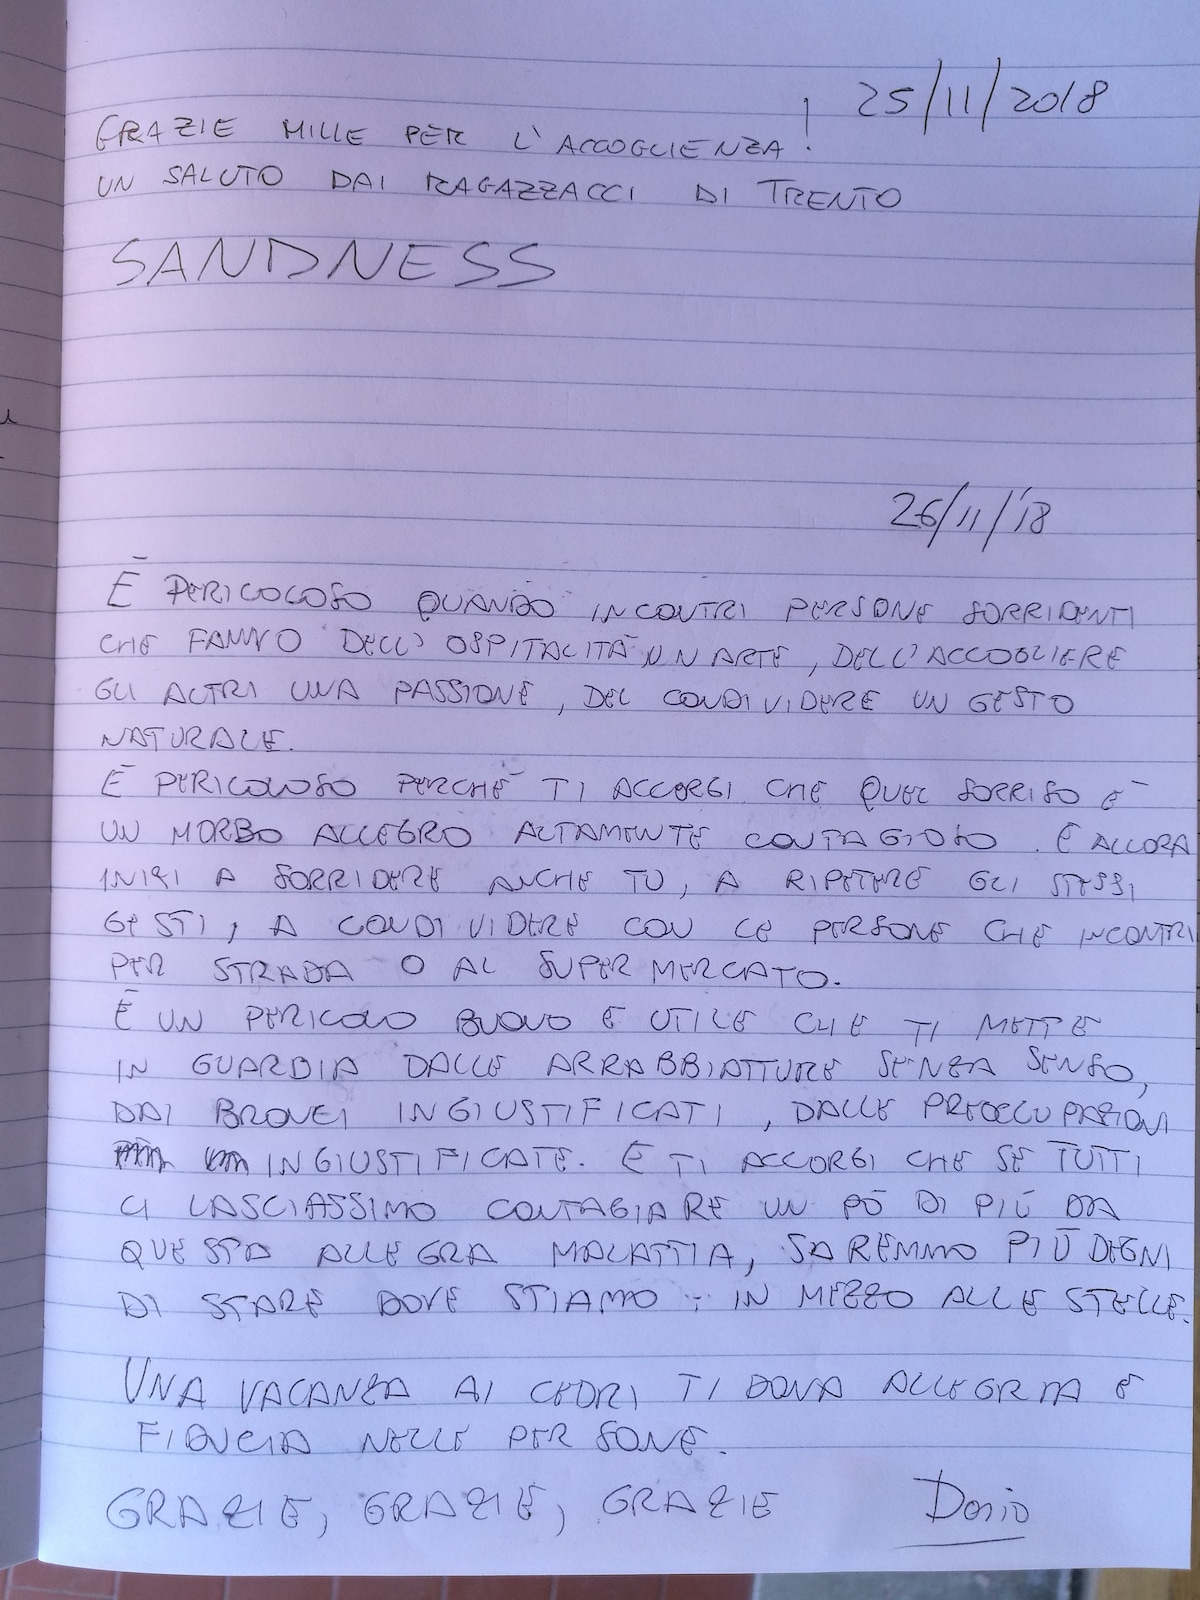 25/11/2018
GRAZIE MILLE PER L'ACCOGLIENZA!
UN SALUTO DAI RAGAZZACCI DI TRENTO
SANDNESS
26/11/'18
È PERICOLOSO QUANDO INCONTRI PERSONE SORRIDENTI
CHE FANNO DELL'OSPITALITÀ UN ARTE, DELL'ACCOGLIERE
GLI ALTRI UNA PASSIONE, DEL CONDIVIDERE UN GESTO
NATURALE.
È PERICOLOSO PERCHÈ TI ACCORGI CHE QUEL SORRISO È
UN MORBO ALLEGRO ALTAMENTE CONTAGIOSO. E ALLORA
INIZI A SORRIDERE ANCHE TU, A RIPETERE GLI STESSI
GESTI, A CONDIVIDERE CON LE PERSONE CHE INCONTRI
PER STRADA O AL SUPERMERCATO.
È UN PERICOLO BUONO E UTILE CHE TI METTE
IN GUARDIA DALLE ARRABBIATTURE SENZA SENSO,
DAI BRONCI INGIUSTIFICATI, DALLE PREOCCUPAZIONI
INGIUSTIFICATE. E TI ACCORGI CHE SE TUTTI
CI LASCIASSIMO CONTAGIARE UN PÒ DI PIÙ DA
QUESTA ALLEGRA MALATTIA, SAREMMO PIÙ DEGNI
DI STARE DOVE STIAMO: IN MEZZO ALLE STELLE.
UNA VACANZA AI CEDRI TI DONA ALLEGRIA E
FIDUCIA NELLE PERSONE.
GRAZIE, GRAZIE, GRAZIE Dario